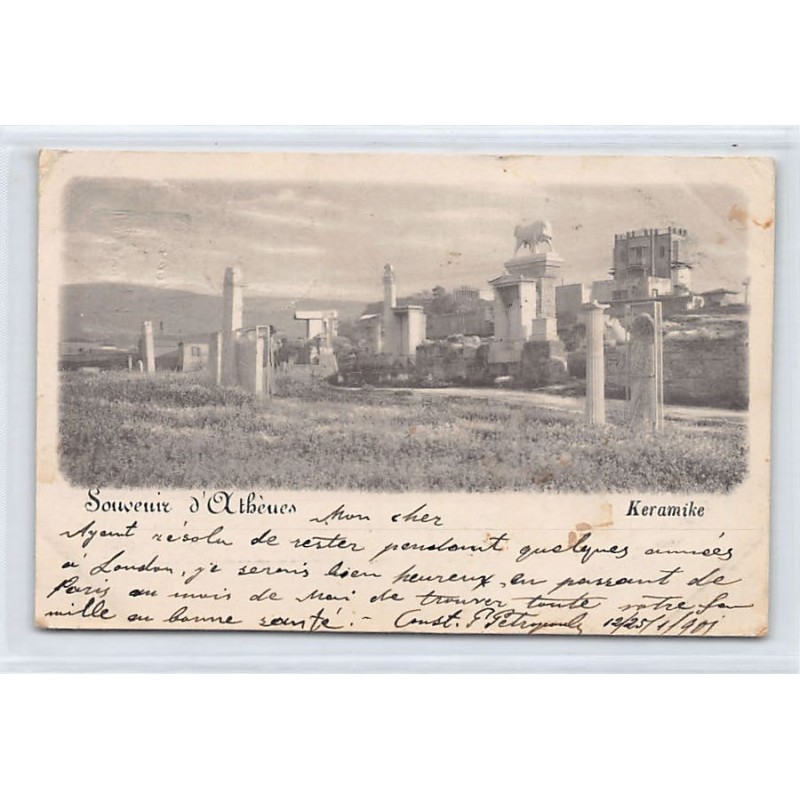 Souvenir d'Athènes
Keramike
Mon cher
Ayant résolu de rester pendant quelques années
à London, je serais bien heureux, en passant de
Paris au mois de Mai de trouver toute votre fa
mille en bonne santé. - Const. 12/25/1/901